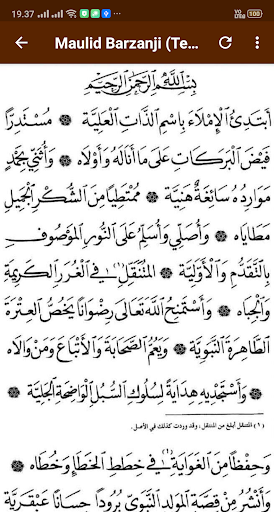 19.37
108
Maulid Barzanji (Te...
بِسْمِ اللهِ الرَّحْمٰنِ الرَّحِيْمِ
أَبْتَدِئُ الْإِمْلَاءَ بِاسْمِ الذَّاتِ الْعَلِيَّةِ ۞ مُسْتَدِرًّا
فَيْضَ الْبَرَكَاتِ عَلَى مَا أَنَالَهُ وَأَوْلَاهُ ۞ وَأُثَنِّي بِحَمْدٍ
مَوَارِدُهُ سَائِغَةٌ هَنِيَّةٌ ۞ مُمْتَطِيًا مِنَ الشُّكْرِ الْجَمِيْلِ
مَطَايَاهُ ۞ وَأُصَلِّي وَأُسَلِّمُ عَلَى النُّوْرِ الْمَوْصُوْفِ
بِالتَّقَدُّمِ وَالْأَوَّلِيَّةِ ۞ الْمُتَنَقِّلِ(١) فِي الْغُرَرِ الْكَرِيْمَةِ
وَالْجِبَاهِ ۞ وَأَسْتَمْنِحُ اللهَ تَعَالَى رِضْوَانًا يَخُصُّ الْعِتْرَةَ
الطَّاهِرَةَ النَّبَوِيَّةَ ۞ وَيَعُمُّ الصَّحَابَةَ وَالْأَتْبَاعَ وَمَنْ وَالَاهُ
۞ وَأَسْتَجْدِيْهِ هِدَايَةً لِسُلُوْكِ السُّبُلِ الْوَاضِحَةِ الْجَلِيَّةِ ۞
(١) المتنقل أبلغ من المنتقل، وقد وردت كذلك في الأصل.
وَحِفْظًا مِنَ الْغَوَايَةِ فِي خِطَطِ الْخَطَإِ وَخُطَاهُ ۞
وَأَنْشُرُ مِنْ قِصَّةِ الْمَوْلِدِ النَّبَوِيِّ بُرُوْدًا حِسَانًا عَبْقَرِيَّةً